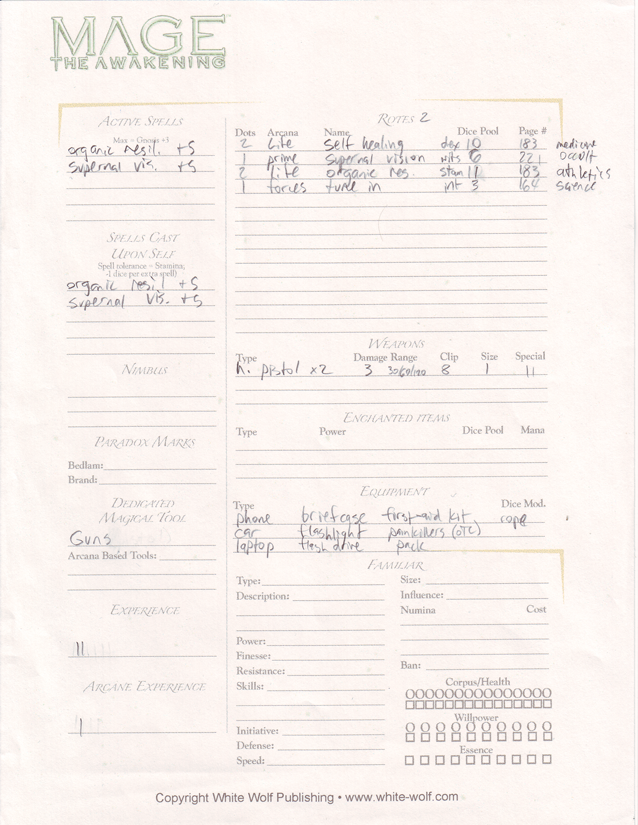 MAGE
THE AWAKENING
ACTIVE SPELLS
Max = Gnosis +3
organic resil. +5
supernal vis. +5
SPELLS CAST
UPON SELF
Spell tolerance = Stamina;
-1 dice per extra spell)
organic resil +5
supernal vis. +5
NIMBUS
PARADOX MARKS
Bedlam:
Brand:
DEDICATED
MAGICAL TOOL
Guns
Arcana Based Tools:
EXPERIENCE
11
ARCANE EXPERIENCE
1
ROTES 2
Dots Arcana Name Dice Pool Page #
2 Life self healing dex 10 183 medicine
1 prime supernal vision wits 6 221 occult
2 life organic res. stam 11 183 athletics
1 forces tune in int 3 164 science
WEAPONS
Type Damage Range Clip Size Special
h. pistol x2 3 8 1 11
ENCHANTED ITEMS
Type Power Dice Pool Mana
EQUIPMENT
Type Dice Mod.
phone briefcase first-aid kit rope
car flashlight painkillers (OTC)
laptop flash drive pack
FAMILIAR
Type:
Description:
Power:
Finesse:
Resistance:
Skills:
Initiative:
Defense:
Speed:
Size:
Influence:
Numina Cost
Ban:
Corpus/Health
Willpower
Essence
Copyright White Wolf Publishing • www.white-wolf.com